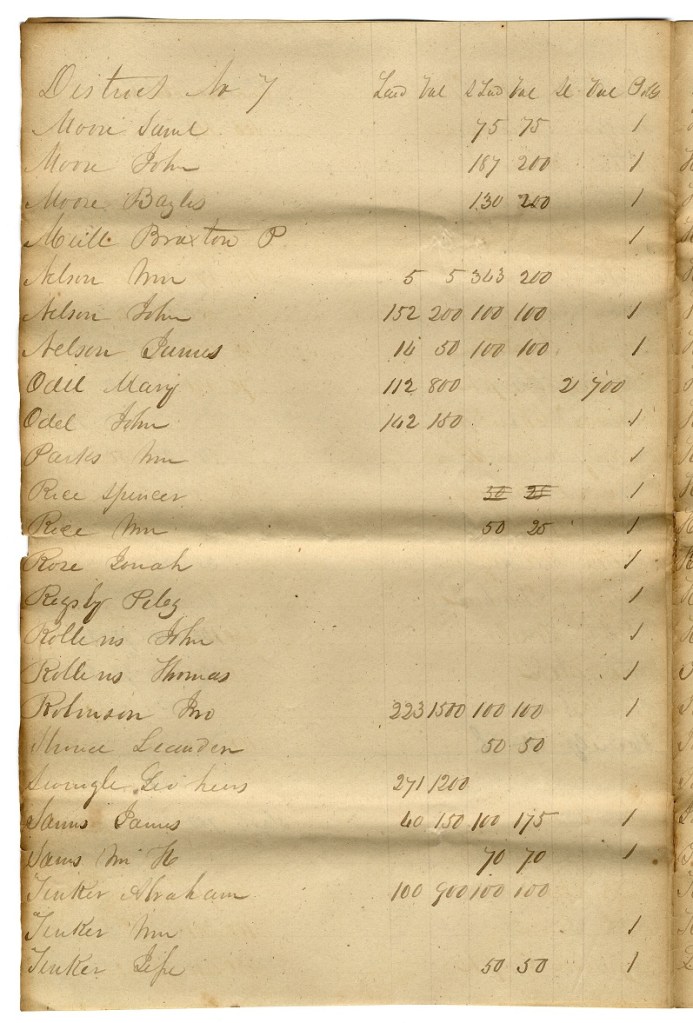 District No 7 Land Val D Land Val Sl Val Polls
Moore Saml 75 75 1
Moore John 187 200 1
Moore Bayles 130 200 1
Braxton P 1
Nelson Wm 5 5 343 200
Nelson John 152 200 100 100 1
Nelson James 14 50 100 100 1
Odell Mary 112 800 2 700
Odel John 142 150 1
Parks Wm 1
Rice Spencer 50 25 1
Rice Wm 50 25 1
Rose Jonah 1
Rigsby Peleg 1
Rollens John 1
Rollens Thomas 1
Robinson Jno 223 1500 100 100 1
Leander 50 50
Swingle Geo heirs 271 1200
Sams James 40 150 100 175 1
Sams Wm H 70 70 1
Tinker Abraham 100 900 100 100
Tinker Wm 1
Tinker 50 50 1